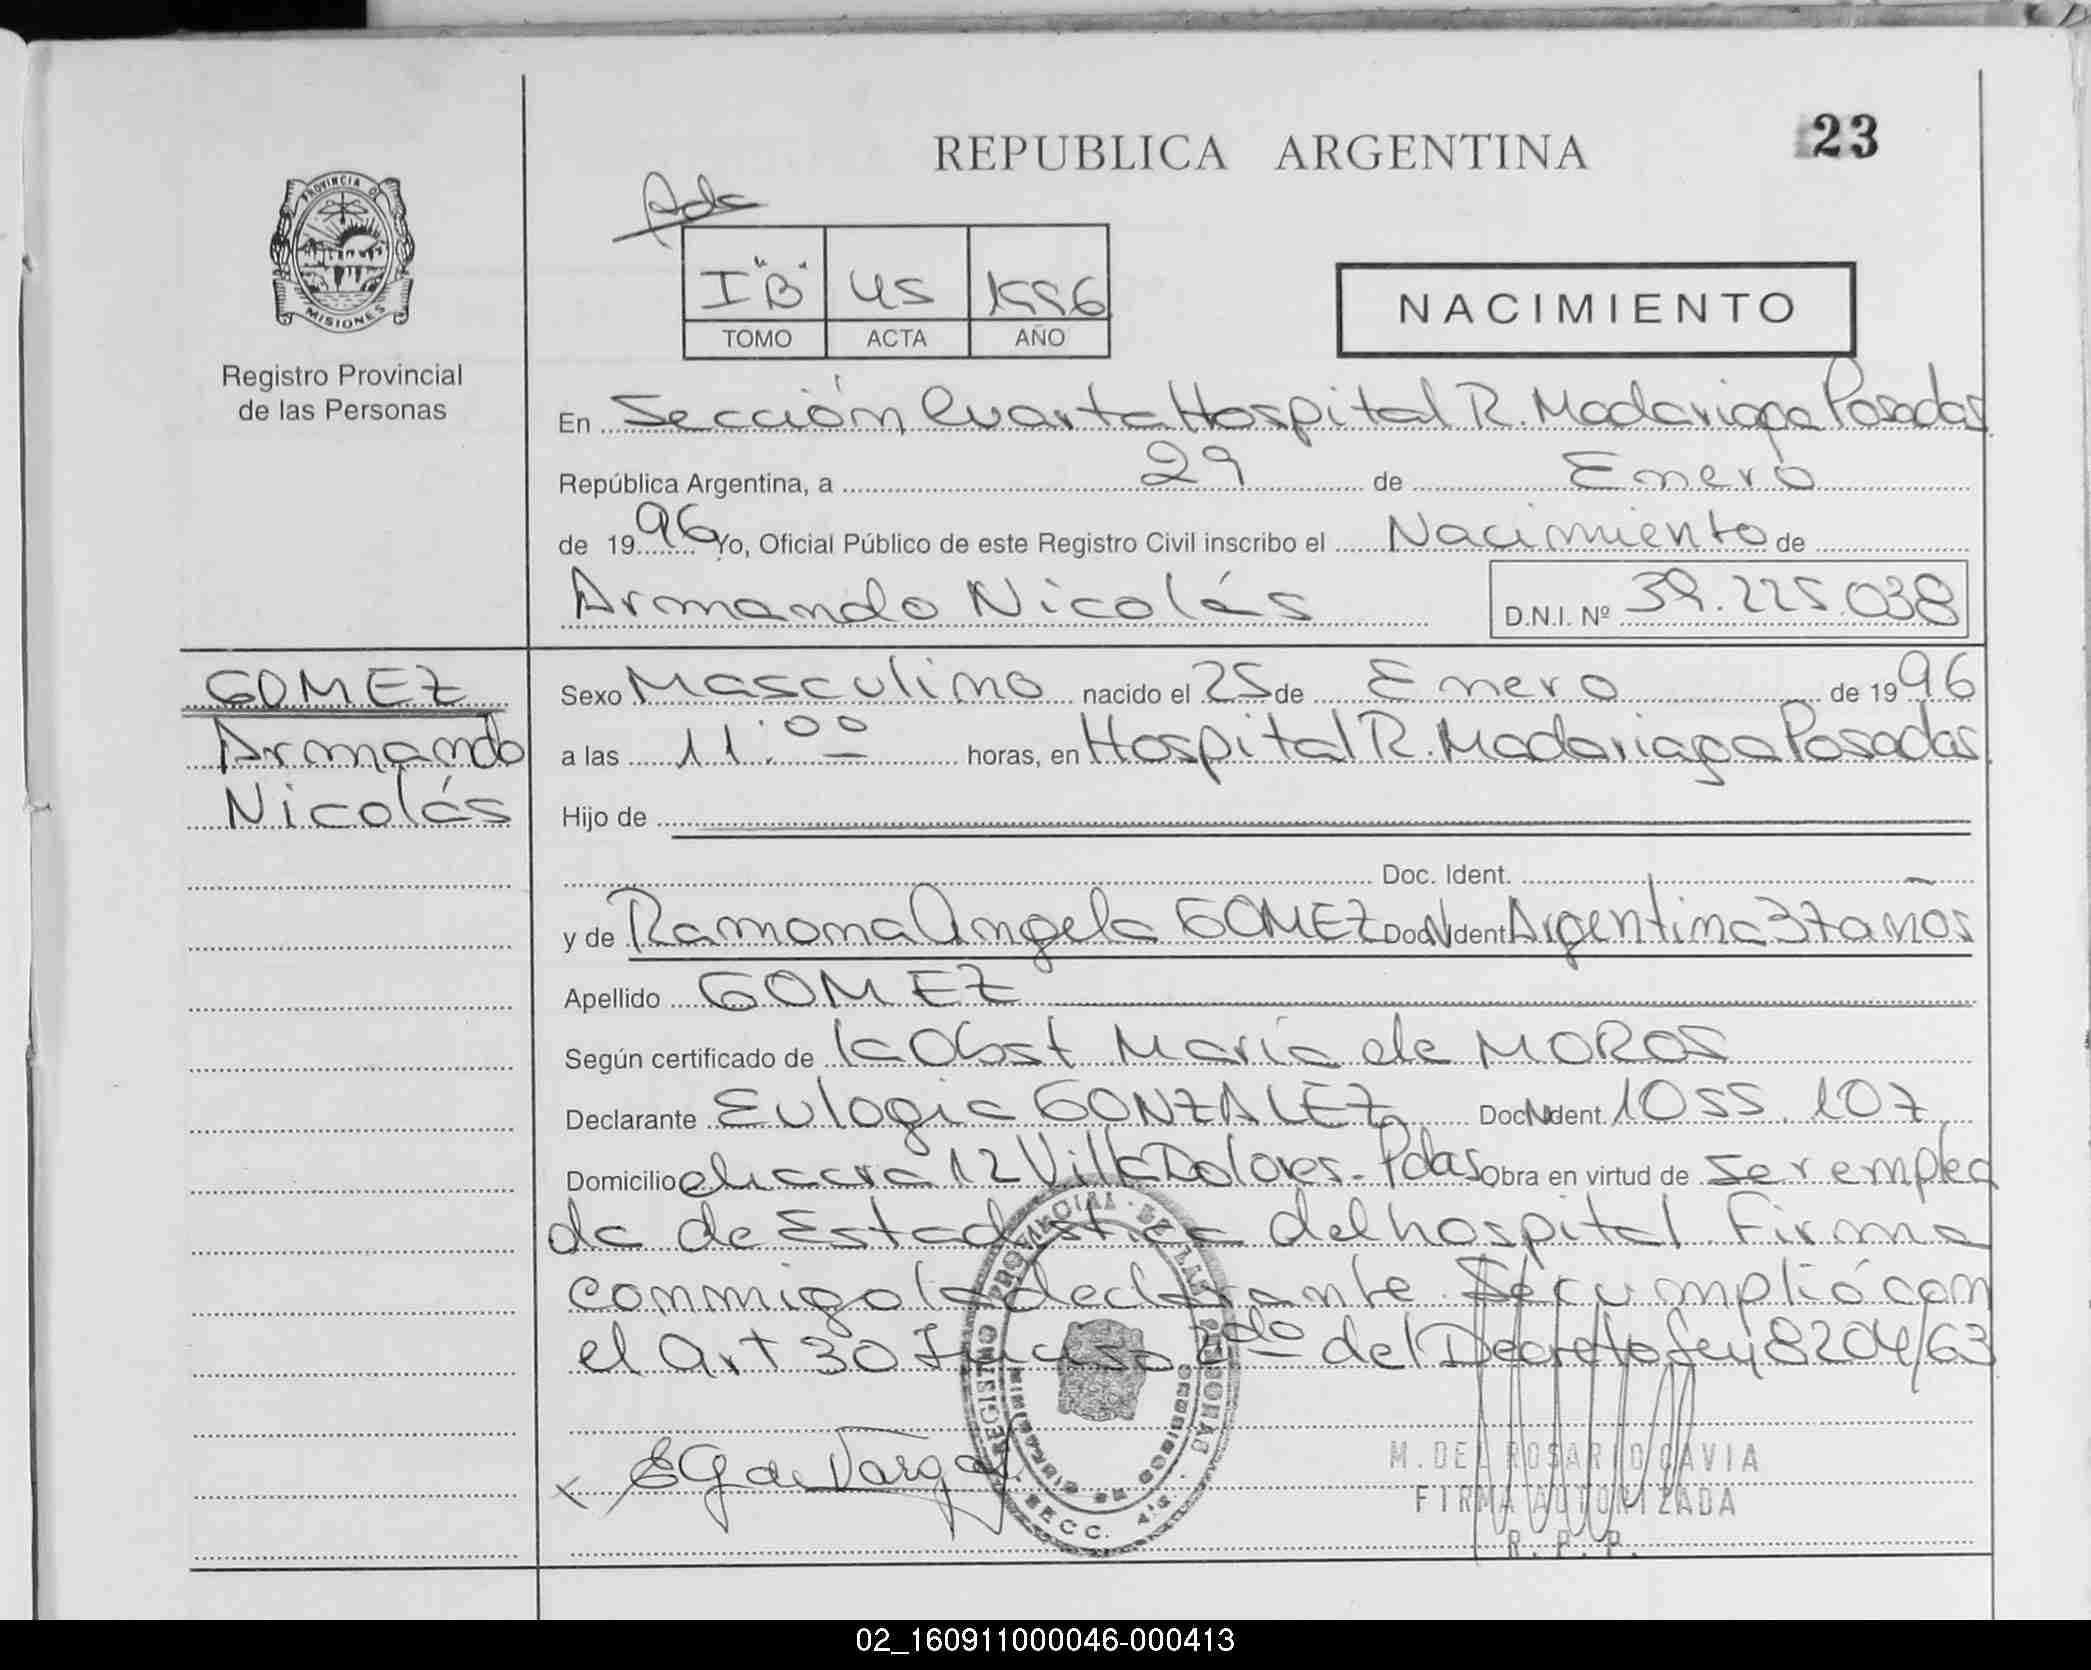 REPUBLICA ARGENTINA
23
PROVINCIA
MISIONES
Registro Provincial
de las Personas
I "B" 45 1996
TOMO ACTA AÑO
NACIMIENTO
En Sección Cuarta Hospital R. Madariaga Posadas
República Argentina, a 29 de Enero
de 1996 Yo, Oficial Público de este Registro Civil inscribo el Nacimiento de
Armando Nicolás
D.N.I. Nº 39.225.038
GOMEZ
Armando
Nicolás
Sexo Masculino nacido el 25 de Enero de 1996
a las 11:00 horas, en Hospital R. Madariaga Posadas
Hijo de
Doc. Ident.
y de Ramona Angela GOMEZ Doc. Ident Argentina 37 años
Apellido GOMEZ
Según certificado de la Obst María de MOROS
Declarante Eulogia GONZALEZ Doc Ident. 1055.107
Domicilio chacra 12 Villa Dolores - Pdas Obra en virtud de ser emplea
da de Estadística del hospital Firma
conmigo la declarante. Se cumplió con
el Art 30 Inciso 2do del Decreto Ley 8204/63
REGISTRO PROVINCIAL DE LAS PERSONAS
SECC. 4ta.
E G de Vargas
M. DEL ROSARIO GAVIA
FIRMA AUTORIZADA
R. P. P.
02_160911000046-000413